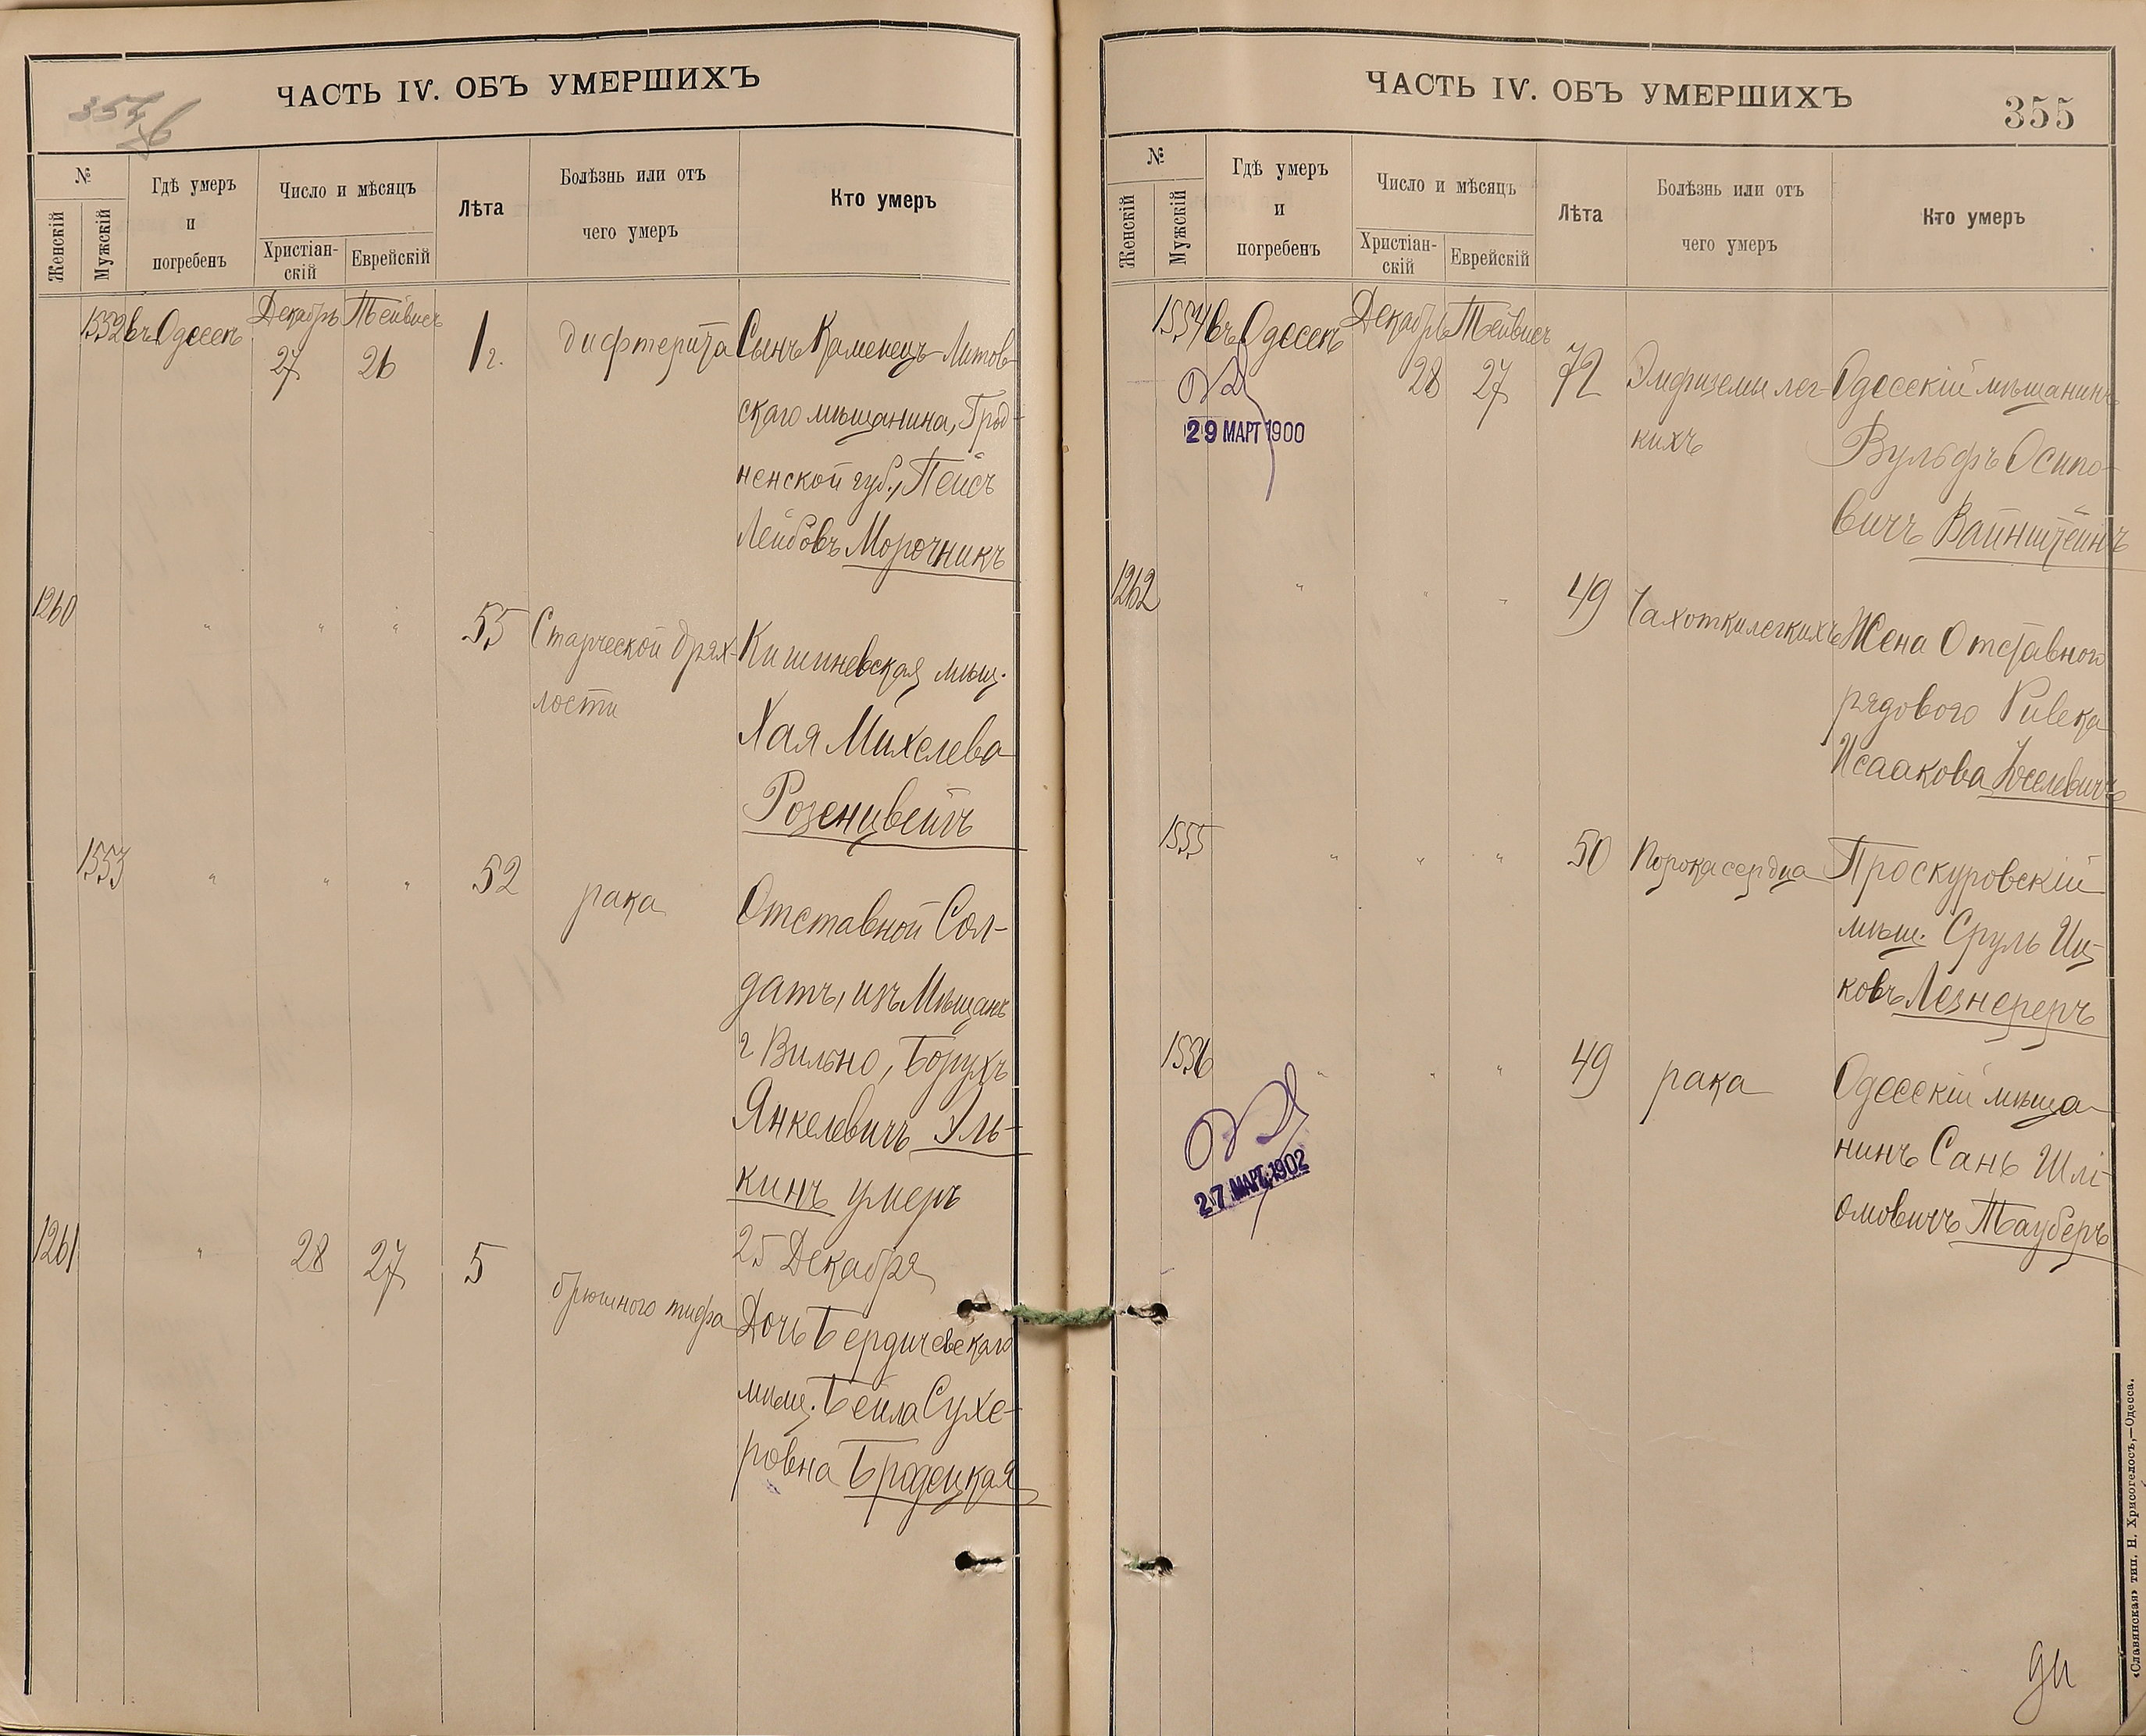 ЧАСТЬ IV. ОБЪ УМЕРШИХЪ
№
Женскій
Мужскій
Гдѣ умеръ
и
погребенъ
Число и мѣсяцъ
Христіан-
скій
Еврейскій
Лѣта
Болѣзнь или отъ
чего умеръ
Кто умеръ
1552 въ Одессѣ Декабрь Тейвисъ
27 26 1 г. дифтерита Сынъ Каменецъ-Литов-
скаго мѣщанина, Грод-
ненской губ., Пейсъ
Лейбовъ Морочникъ
1260 " " " 55 Старческой дрях-
лости
Кишиневская мѣщ.
Хая Михелева
Розенцвейгъ
1553 " " " 52 рака
Отставной Сол-
датъ, изъ Мѣщанъ
г Вильно, Борухъ
Янкелевичъ Эль-
кинъ умеръ
25 Декабря
1261 " 28 27 5 брюшного тифа
Дочь Бердичевскаго
мѣщ. Бейла Сухе-
ровна Бродецкая
ЧАСТЬ IV. ОБЪ УМЕРШИХЪ
355
№
Женскій
Мужскій
Гдѣ умеръ
и
погребенъ
Число и мѣсяцъ
Христіан-
скій
Еврейскій
Лѣта
Болѣзнь или отъ
чего умеръ
Кто умеръ
1554 въ Одессѣ Декабрь Тейвисъ
28 27 72 Эмфиземы лег-
кихъ
29 МАРТ 1900
Одесскій мѣщанинъ
Вульфъ Осипо-
вичъ Вайнштейнъ
1262 " " " 49 Чахотки легкихъ
Жена Отставного
рядового Ривека
Исаакова Іоселевичъ
1555 " " " 50 Порока сердца
Проскуровскій
мѣщ. Сруль Иц-
ковъ Лезнереръ
1556 " " " 49 рака
27 МАРТ 1902
Одесскій мѣща-
нинъ Сань Шлі-
омовичъ Тауберъ
«Славянская» тип. Н. Хрисогелосъ,—Одесса.